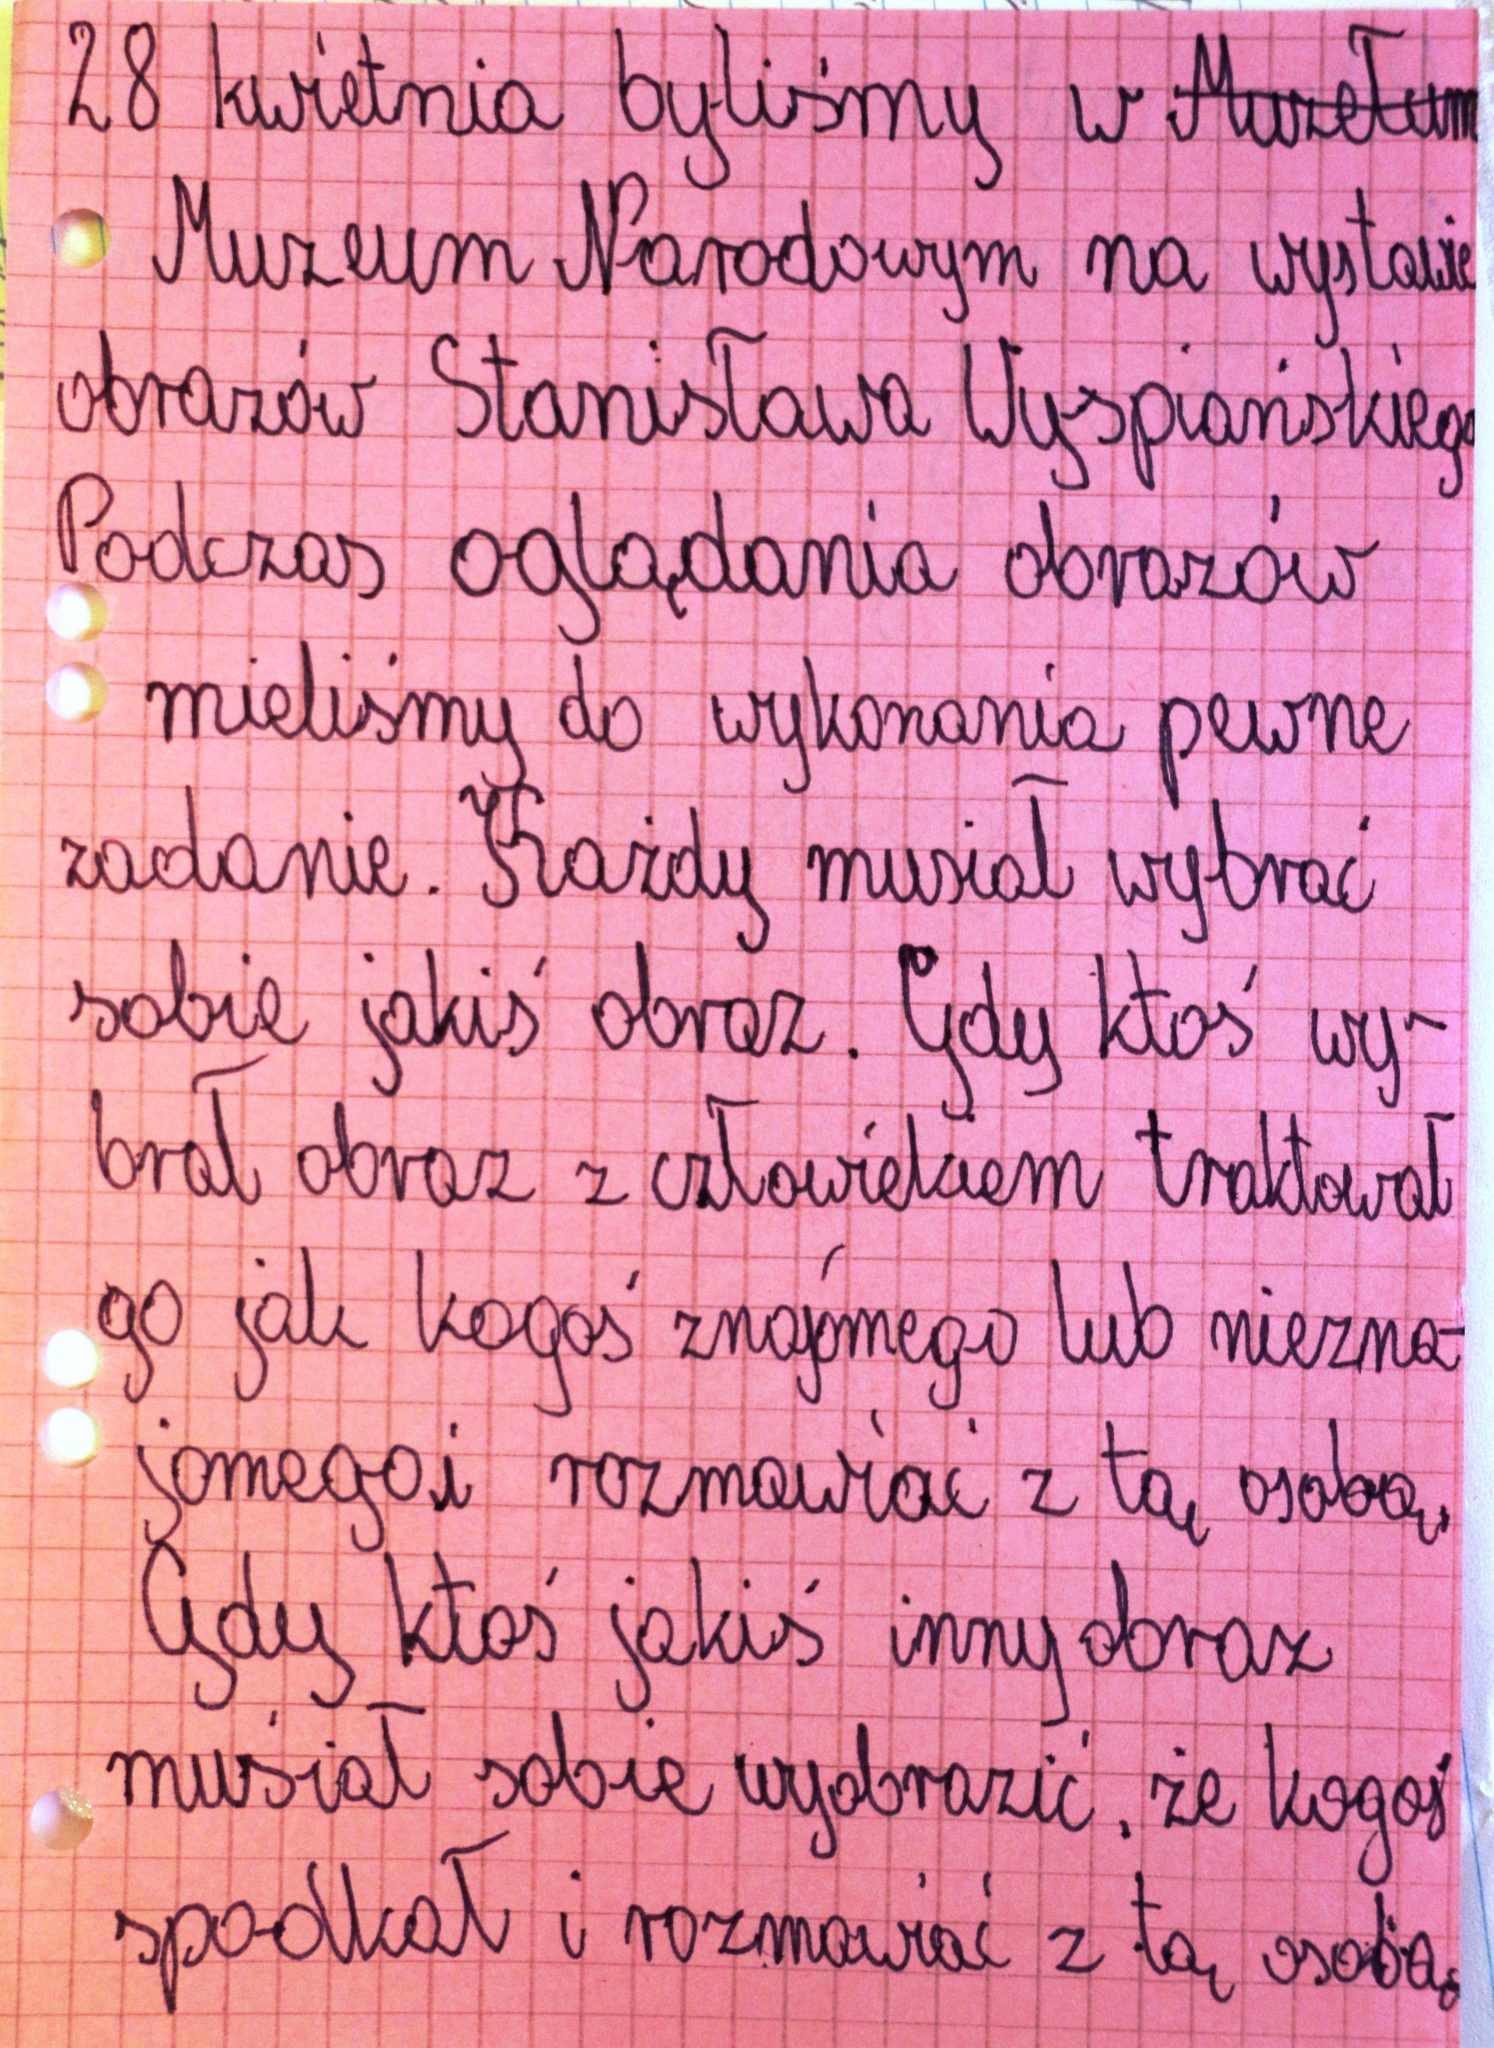 28 kwietnia byliśmy w Muzełum
Muzeum Narodowym na wystawie
obrazów Stanisława Wyspiańskiego
Podczas oglądania obrazów
mieliśmy do wykonania pewne
zadanie. Każdy musiał wybrać
sobie jakiś obraz. Gdy ktoś wy-
brał obraz z człowiekiem traktował
go jak kogoś znajomego lub niezna-
jomego i rozmawiać z tą osobą.
Gdy ktoś jakiś inny obraz
musiał sobie wyobrazić, że kogoś
spodkał i rozmawiać z tą osobą.